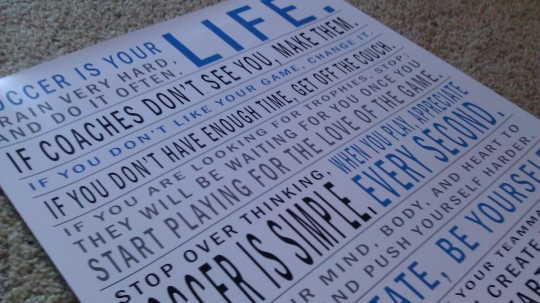 OCCER IS YOUR LIFE.
TRAIN VERY HARD,
AND DO IT OFTEN.
IF COACHES DON'T SEE YOU, MAKE THEM.
IF YOU DON'T LIKE YOUR GAME, CHANGE IT.
IF YOU DON'T HAVE ENOUGH TIME, GET OFF THE COUCH.
IF YOU ARE LOOKING FOR TROPHIES, STOP;
THEY WILL BE WAITING FOR YOU ONCE YOU
START PLAYING FOR THE LOVE OF THE GAME.
STOP OVER THINKING,
WHEN YOU PLAY, APPRECIATE
OCCER IS SIMPLE. EVERY SECOND.
UR MIND, BODY, AND HEART TO
AND PUSH YOURSELF HARDER.
ATE, BE YOURSELF
YOUR TEAMMA
CREATE